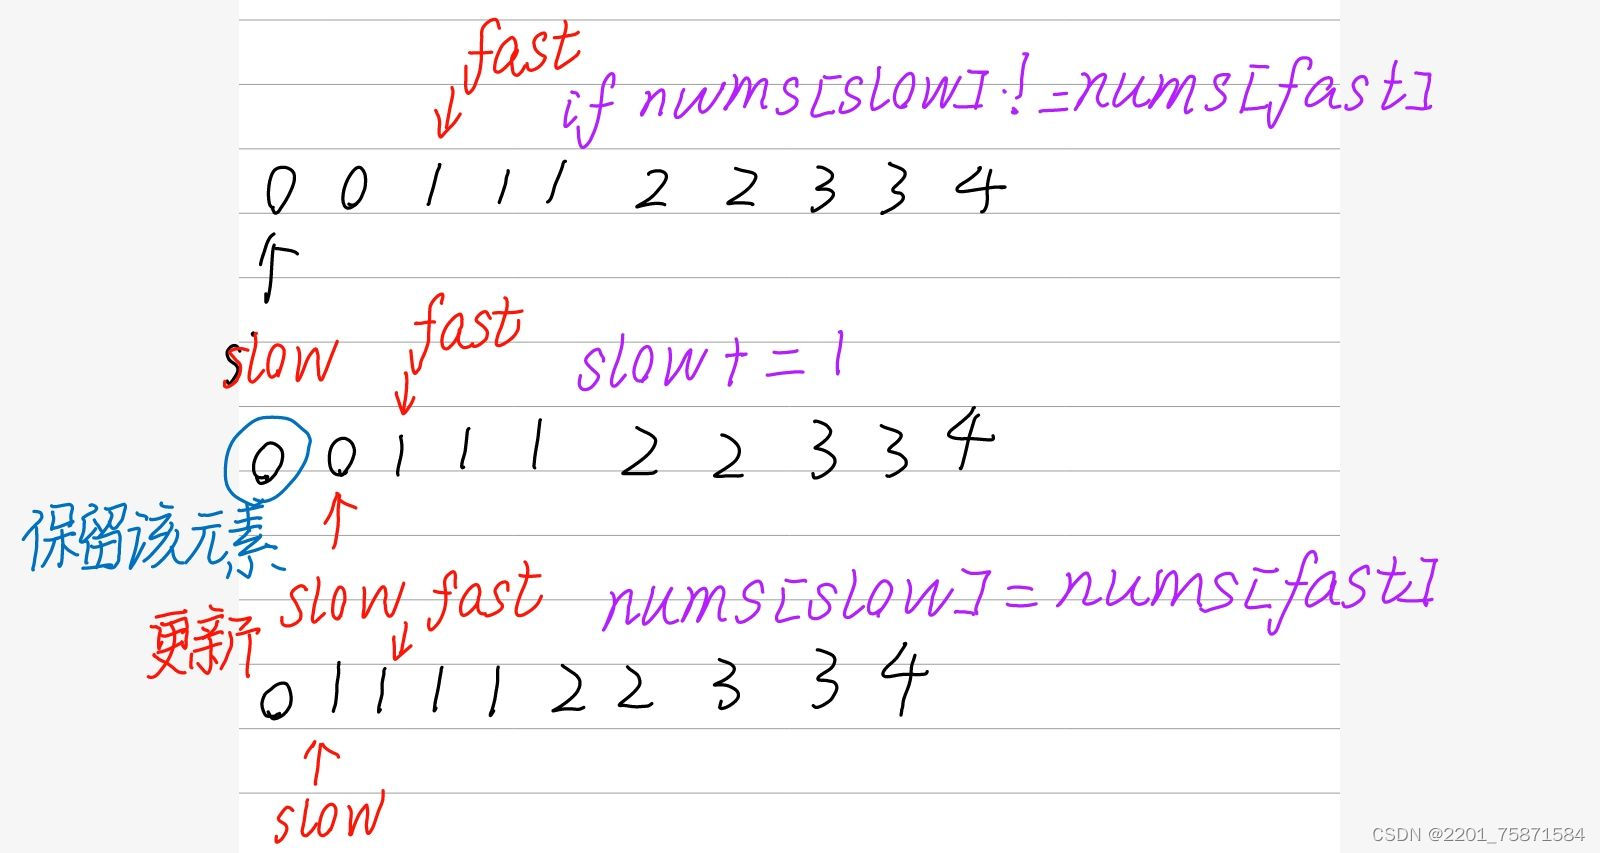 fast
if nums[slow]!=nums[fast]
0 0 1 1 1 2 2 3 3 4
fast
slow
slow+=1
0 0 1 1 1 2 2 3 3 4
保留该元素
slow fast
nums[slow]=nums[fast]
更新
0 1 1 1 1 2 2 3 3 4
slow
CSDN @2201_75871584